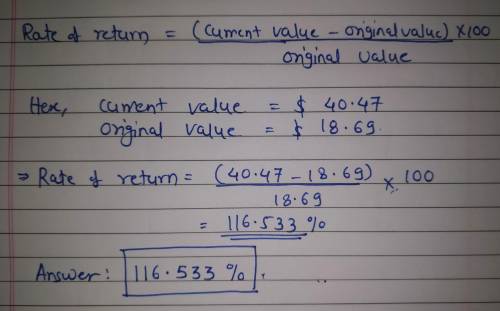 Rate of return = (current value - original value) ×100
original value
Here, current value = $ 40.47
original value = $ 18.69.
⇒ Rate of return = (40.47 - 18.69) × 100
18.69
= 116.533 %
Answer: 116.533 %.